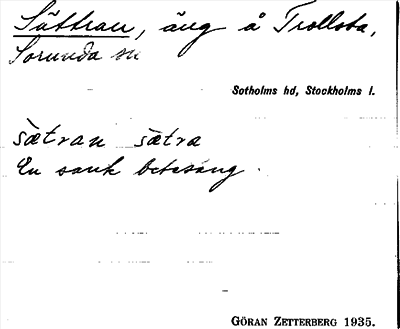 Sättran, äng å Trollsta,
Sorunda sn
Sotholms hd, Stockholms l.
sætran sætra
En sank betesäng.
GÖRAN ZETTERBERG 1935.